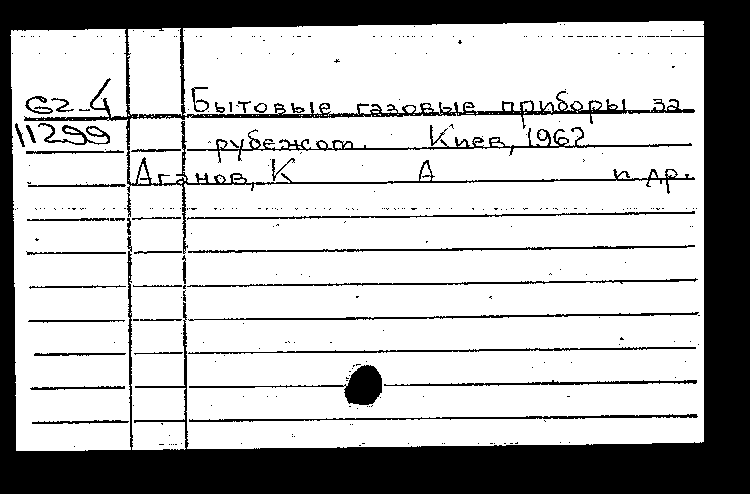 62-4 Бытовые газовые приборы за
11299 рубежом. Киев, 1962
Аганов, К А и др.